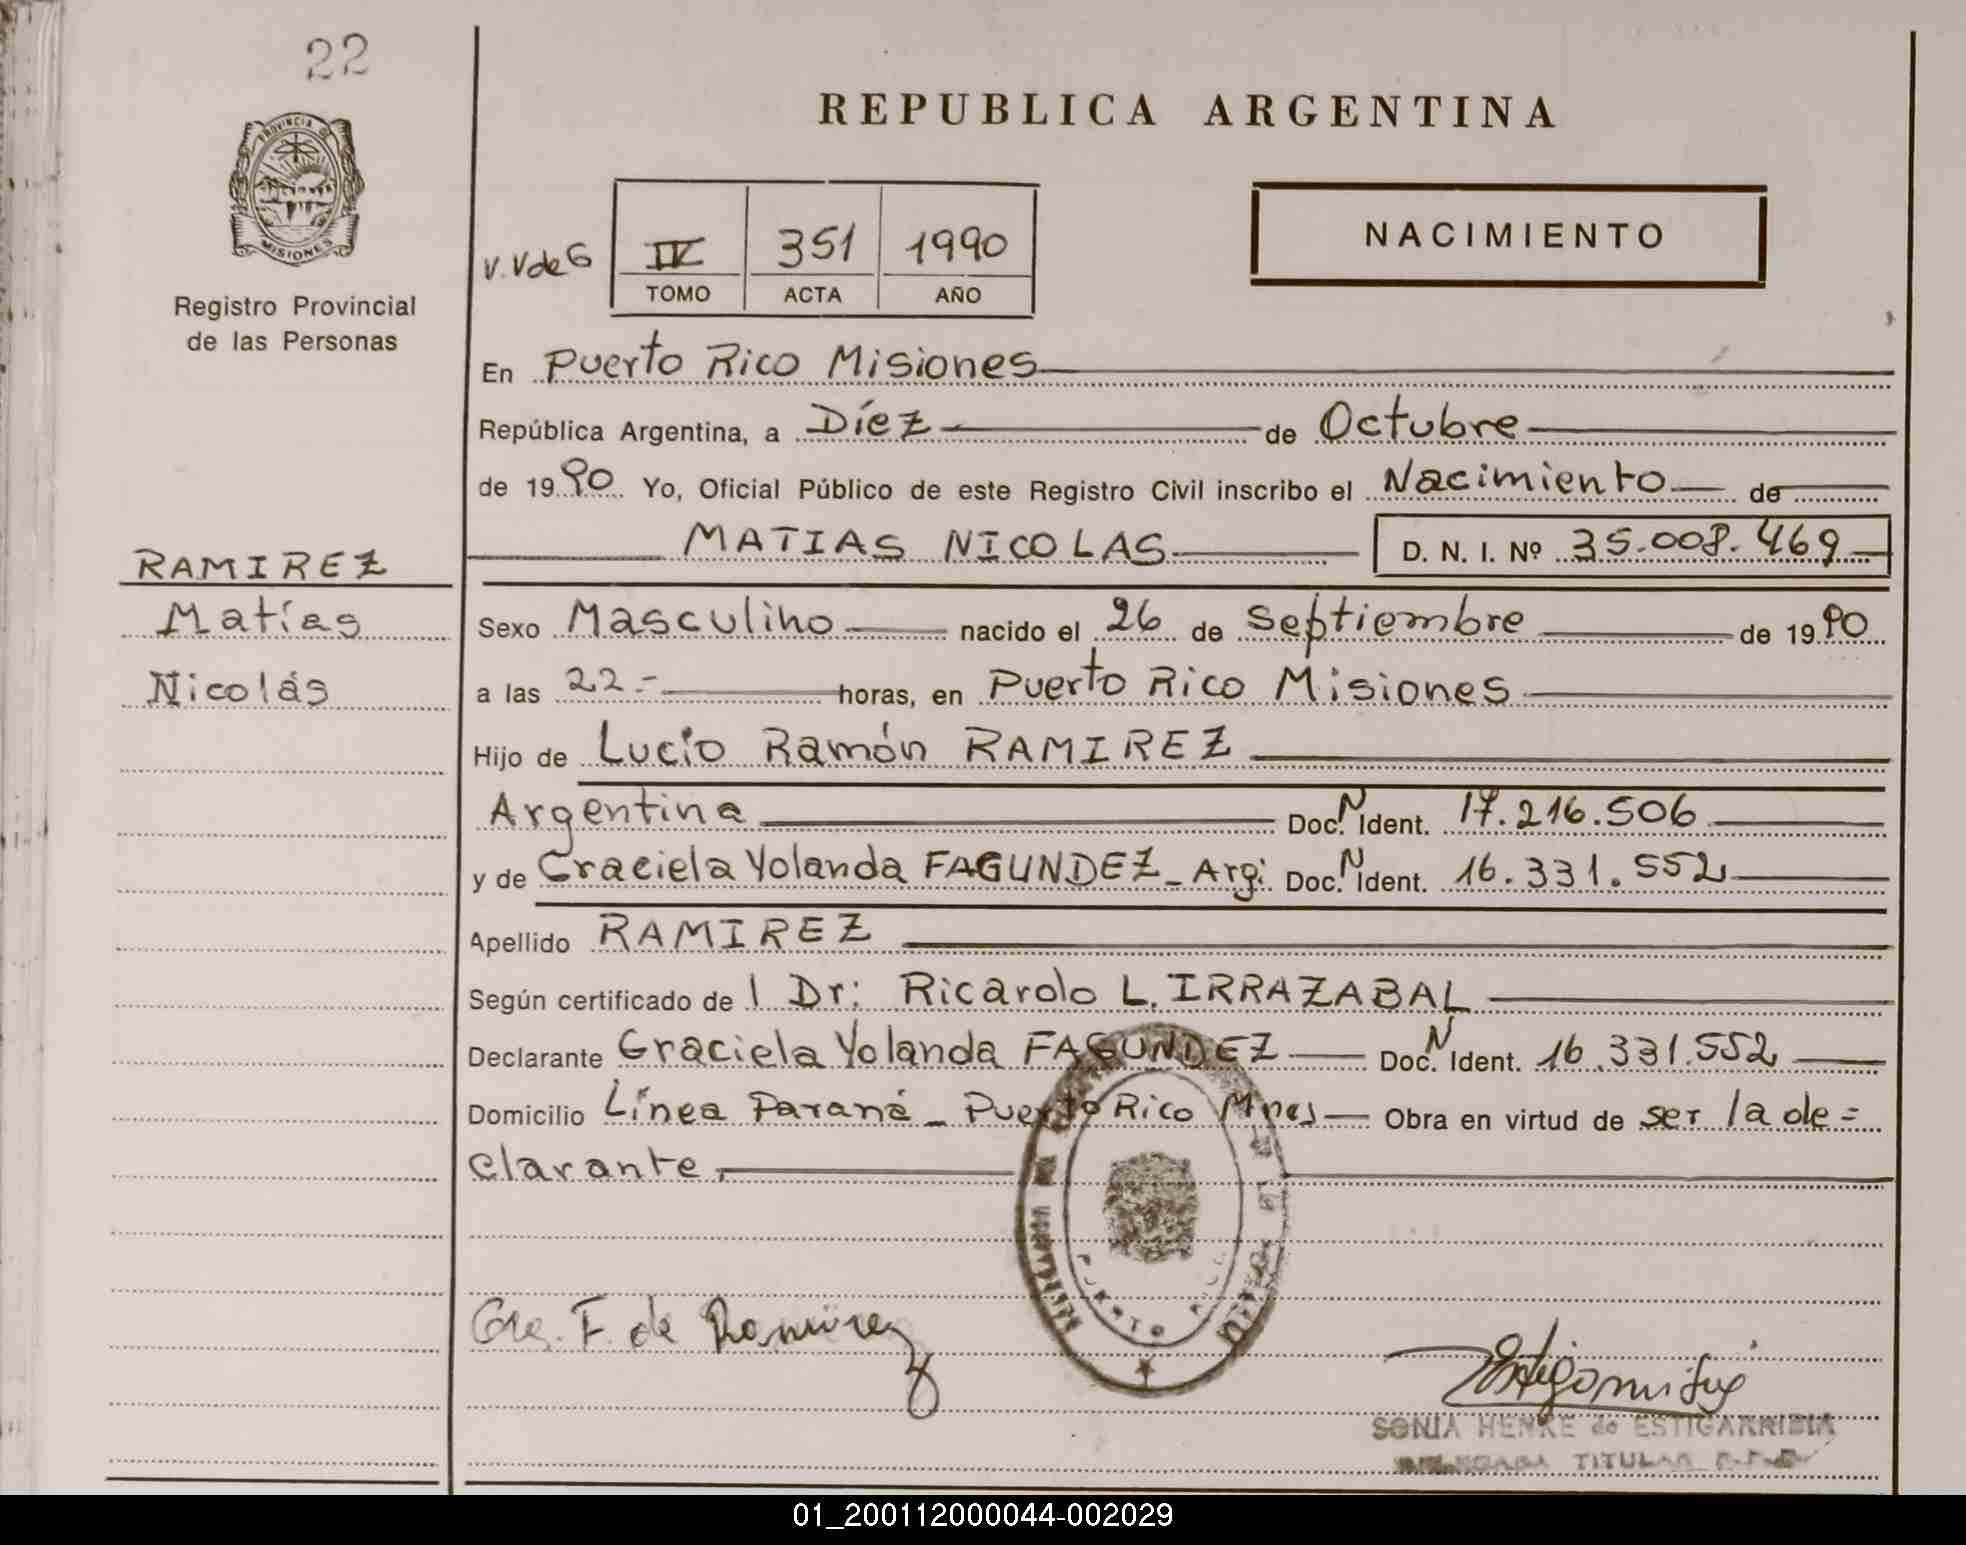 22
PROVINCIA DE
MISIONES
Registro Provincial
de las Personas
REPUBLICA ARGENTINA
V.VdeG
IV 351 1990
TOMO ACTA AÑO
NACIMIENTO
En Puerto Rico Misiones
República Argentina, a Díez de Octubre
de 1990 Yo, Oficial Público de este Registro Civil inscribo el Nacimiento de
MATIAS NICOLAS D. N. I. Nº 35.008.469
RAMIREZ
Matías
Nicolás
Sexo Masculino nacido el 26 de Septiembre de 1990
a las 22.- horas, en Puerto Rico Misiones
Hijo de Lucio Ramón RAMIREZ
Argentina Doc. N Ident. 17.216.506
y de Graciela Yolanda FAGUNDEZ - Arg. Doc. N Ident. 16.331.552
Apellido RAMIREZ
Según certificado de l Dr: Ricardo L. IRRAZABAL
Declarante Graciela Yolanda FAGUNDEZ Doc. N Ident. 16.331.552
Domicilio Línea Paraná - Puerto Rico Mnes Obra en virtud de ser la de=
clarante.
PUERTO
Gra. F. de Ramirez
SONIA HENKE de ESTIGARRIBIA
DELEGADA TITULAR
01_200112000044-002029